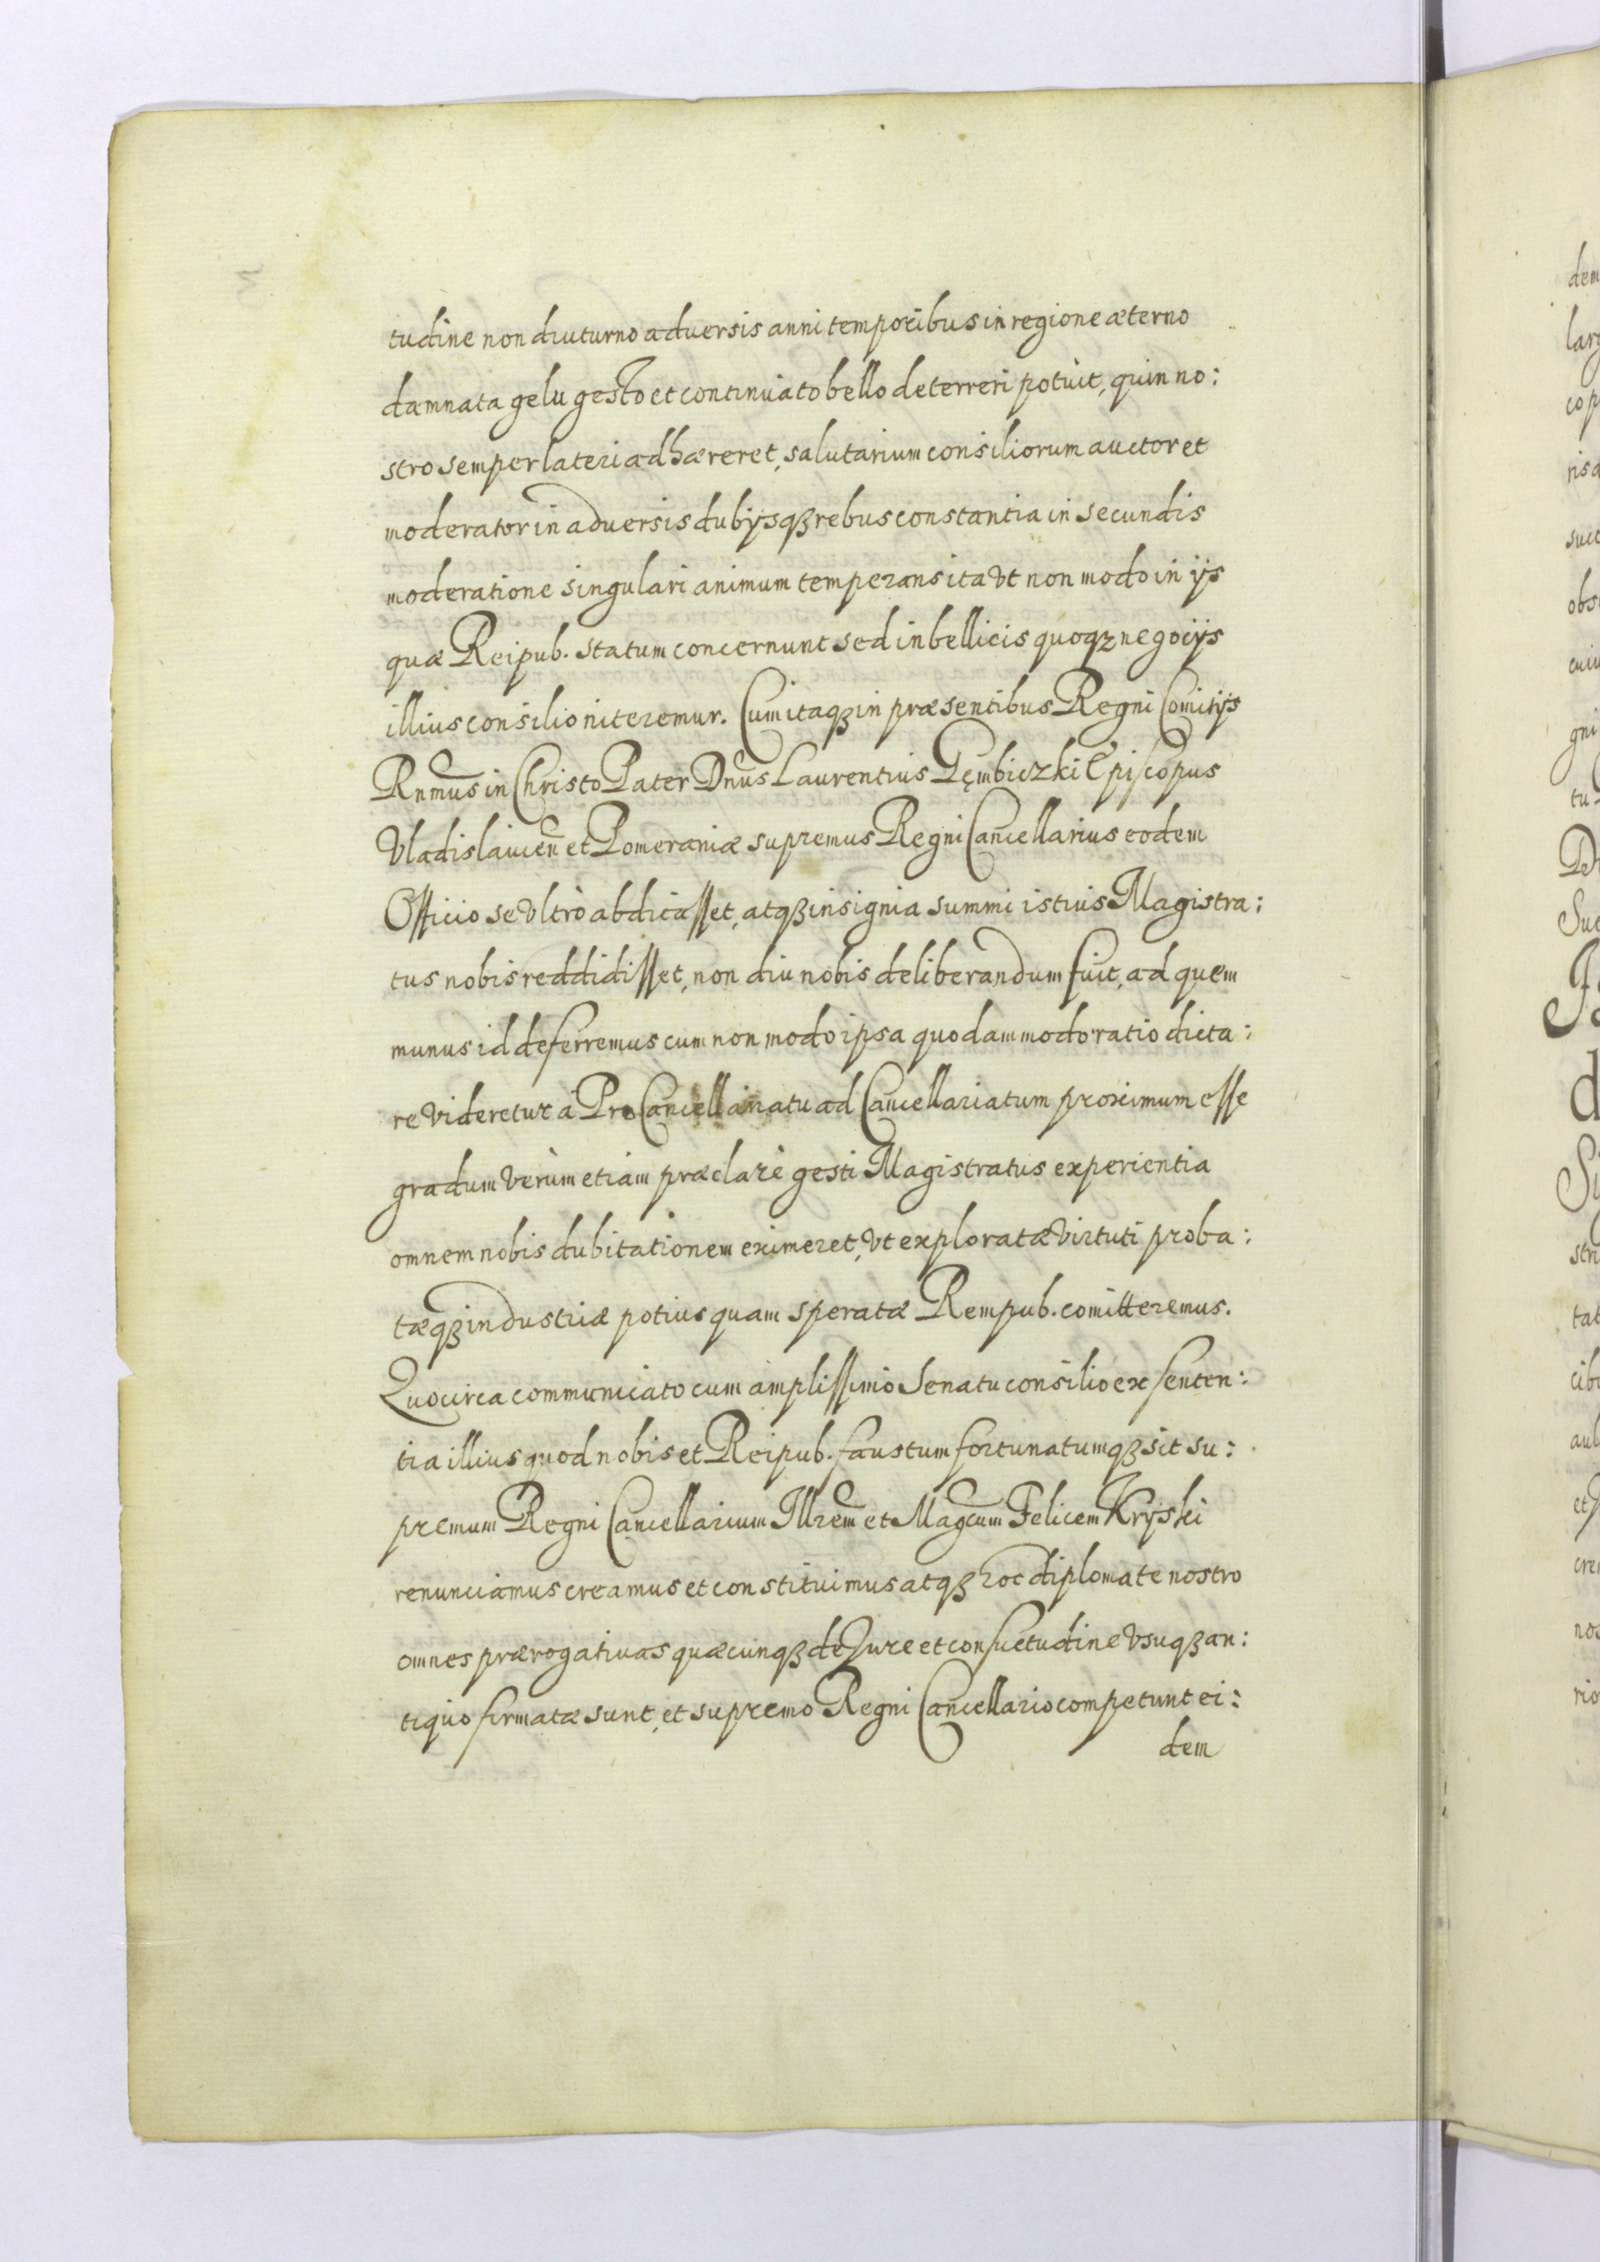 tudine non diuturno adversis anni temporibus in regione æterno
damnata gelu gesto et continuato bello deterreri potuit, quin no:
stro semper lateri adhæreret, salutarium consiliorum auctor et
moderator in adversis dubijsqꝫ rebus constantia in secundis
moderatione singulari animum temperans ita ut non modo in ijs
quæ Reipub. statum concernunt sed in bellicis quoqꝫ negocijs
illius consilio niteremur. Cum itaqꝫ in præsentibus Regni Comitijs
Rnmus in Christo Pater Dnus Laurentius Gęmbiczki Episcopus
Vladislauien et Pomeraniæ supremus Regni Cancellarius eodem
Officio se ultrò abdicasset, atqꝫ insignia summi istius Magistra:
tus nobis reddidisset, non diu nobis deliberandum fuit, ad quem
munus id deferremus cum non modo ipsa quodammodo ratio dicta:
re videretur à ProCancellariatu ad Cancellariatum proximum esse
gradum verùm etiam præclarè gesti Magistratus experientia
omnem nobis dubitationem eximeret, ut exploratæ virtuti proba:
tæqꝫ industriæ potius quam speratæ Rempub. comitteremus.
Quocirca communicato cum amplissimo Senatu consilio ex senten:
tia illius quod nobis et Reipub. faustum fortunatumqꝫ sit su:
premum Regni Cancellarium Illrem et Magcum Felicem Kryski
renunciamus creamus et constituimus atqꝫ hoc diplomate nostro
omnes prærogativas quæcunqꝫ de Jure et consuetudine usuqꝫ an:
tiquo firmatæ sunt, et supremo Regni Cancellario competunt ei:
dem